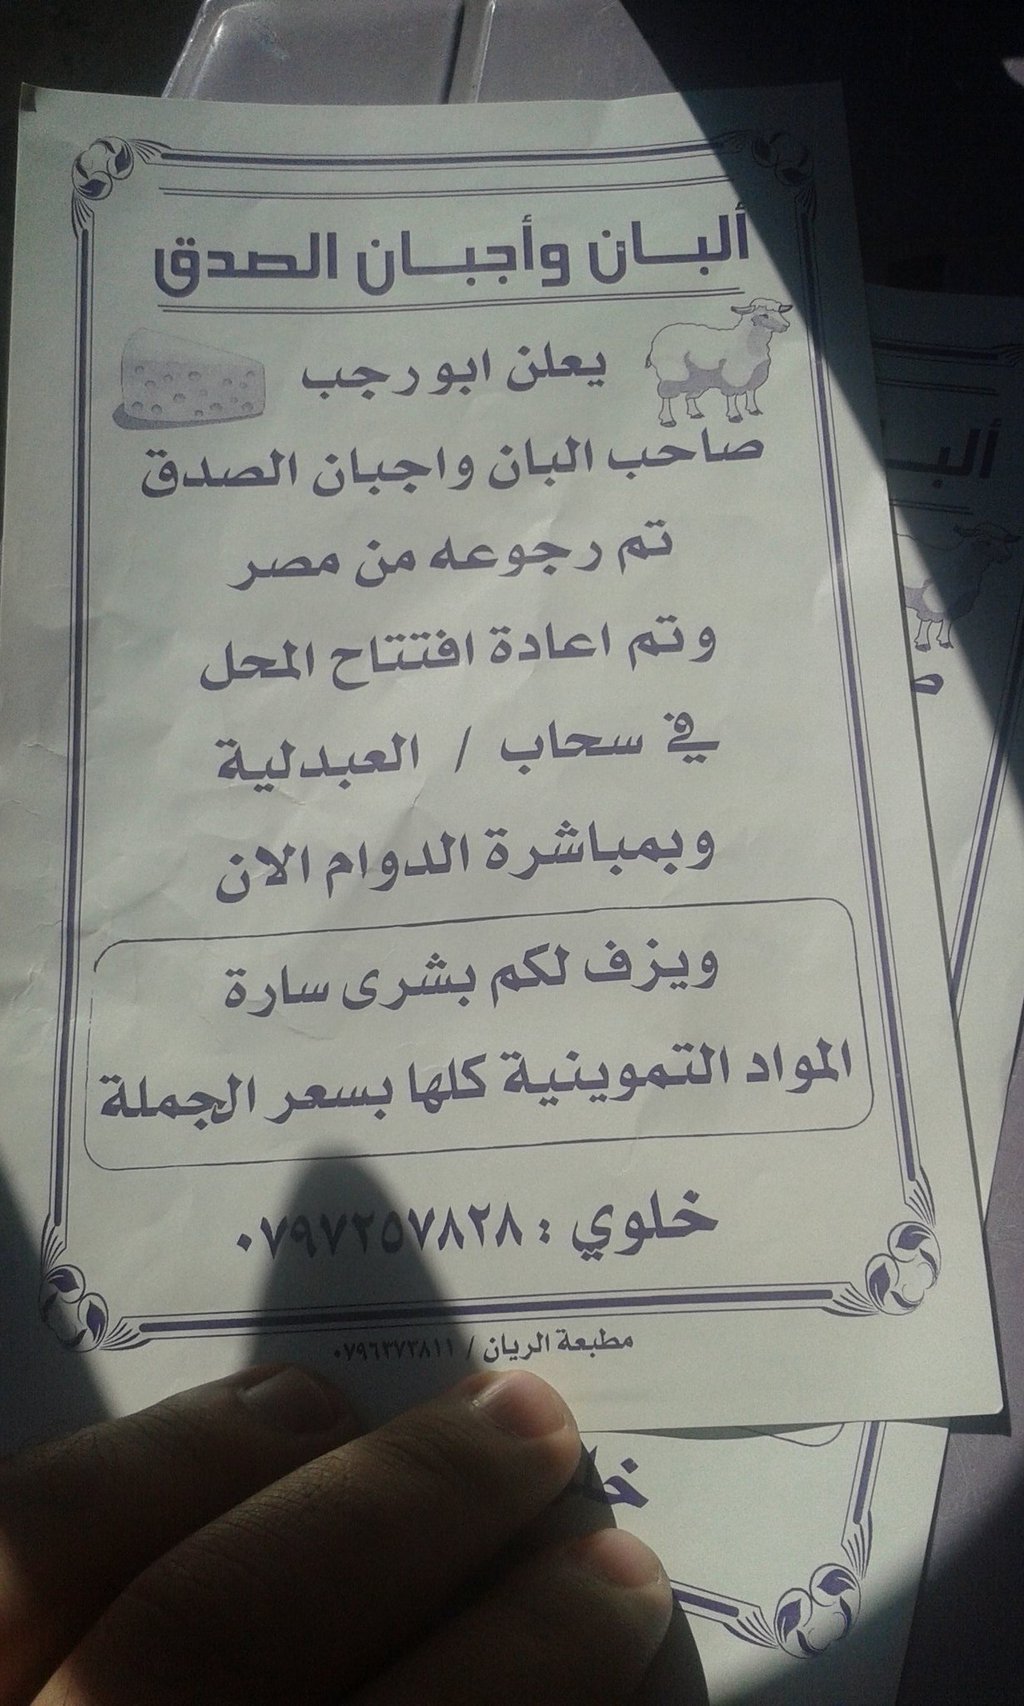 ألبــان وأجبــان الصدق
يعلن ابو رجب
صاحب البان واجبان الصدق
تم رجوعه من مصر
وتم اعادة افتتاح المحل
في سحاب / العبدلية
وبمباشرة الدوام الان
ويزف لكم بشرى سارة
المواد التموينية كلها بسعر الجملة
خلوي : ٠٧٩٧٢٥٧٨٢٨
مطبعة الريان / ٠٧٩٦٣٧٣٨١١